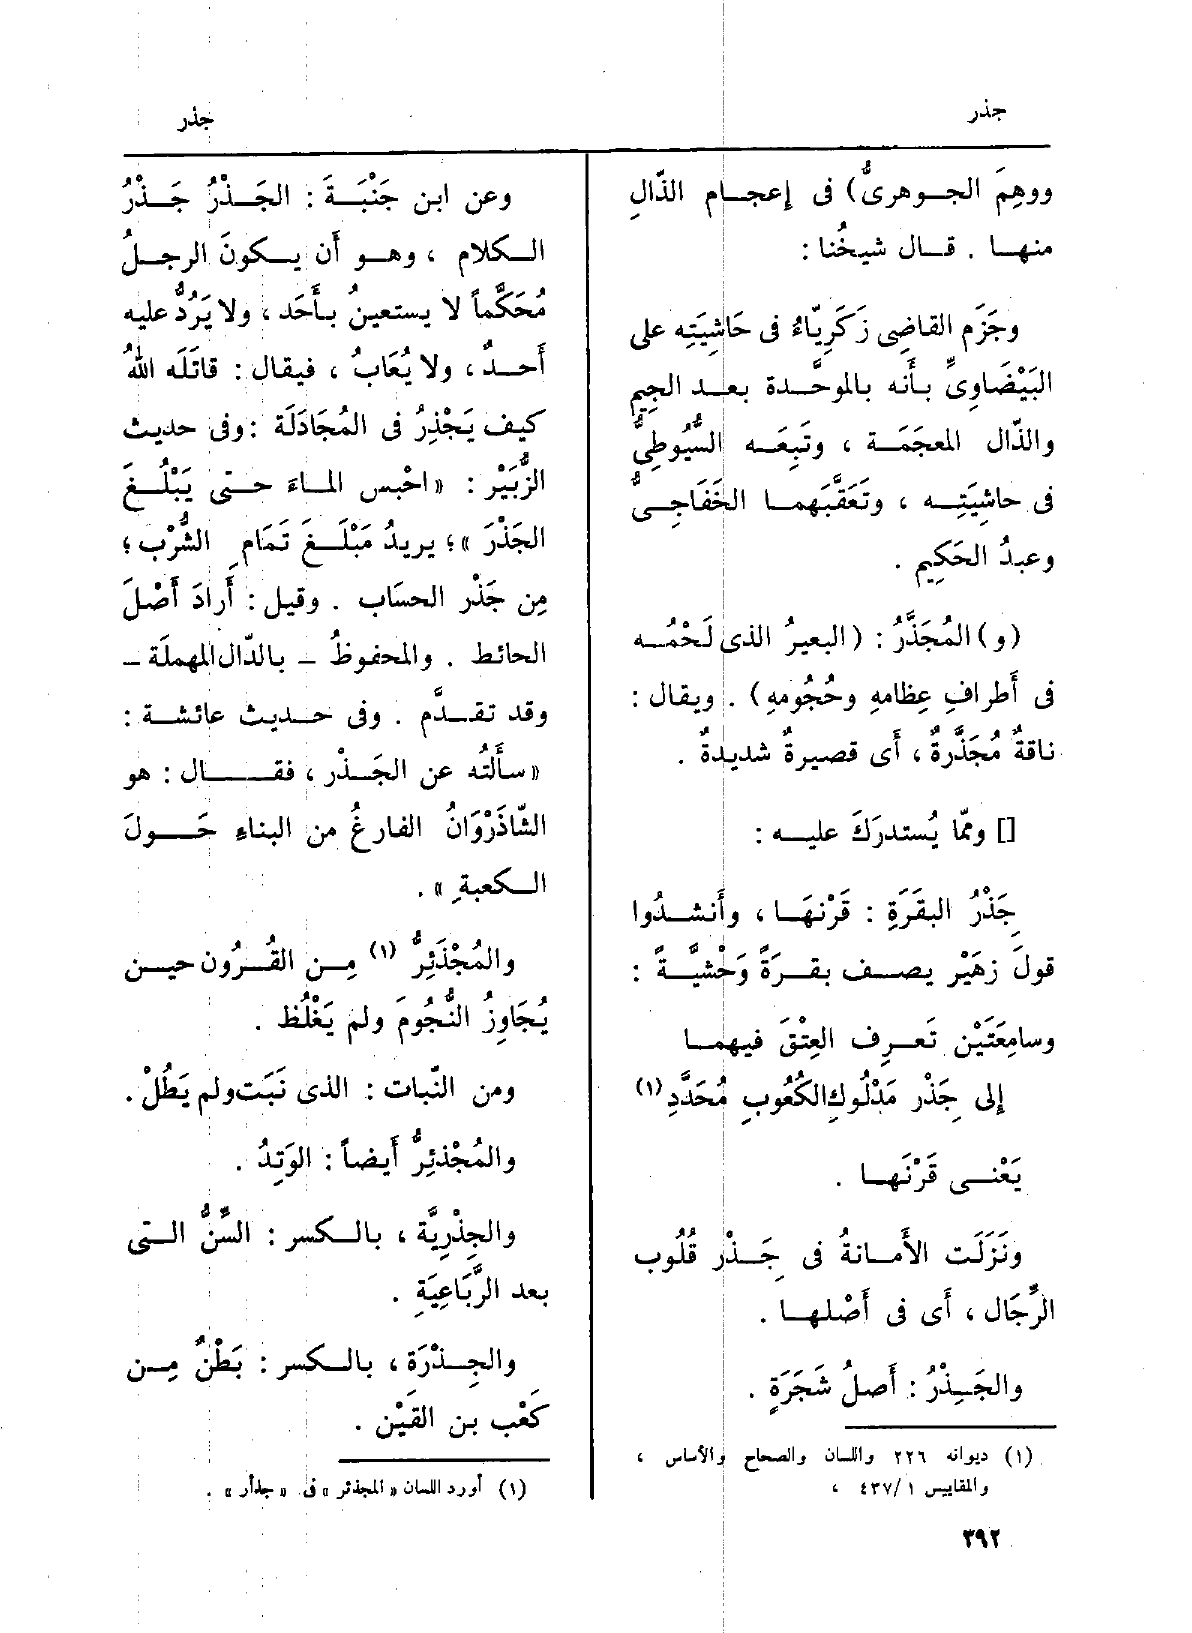 جذر
جذر
ووهِمَ الجـوهرىُّ) فى إعجـام الذّالِ
منهـا . قـال شيخُنا :
وجَزَم القاضِى زَكَرِيّاءُ فى حَاشِيَتِه على
البَيْضَاوِىّ بأنه بالموحَّـدة بعـد الجِيمِ
والذّال المعجَمَـة ، وتَبِعَـه السُّيُوطِىُّ
فى حاشِيَتِـه ، وتَعَقَّبَهمـا الخَفَاجِـىُّ
وعبدُ الحَكِيمِ .
(و) المُجَذَّرُ : (البعيرُ الذى لَحْمُـه
فى أَطرافِ عِظامهِ وحُجُومهِ) . ويقال :
ناقةٌ مُجَذَّرةٌ ، أَى قصيرةٌ شديدةٌ .
[] وممّا يُستدرَكَ عليـه :
جِذْرُ البقَرَةِ : قَرْنهَـا ، وأَنشـدُوا
قولَ زهَيْر يصـف بقـرَةً وَحْشيَّـةً :
وسامِعَتَيْن تَعـرِف العِتْقَ فيهمـا
إلى جِذْر مَدْلُوكِ الكُعُوبِ مُحَدَّدِ (١)
يَعْنـى قَرْنَهـا .
ونَزَلَت الأَمـانةُ فى جِـذْر قُلُوب
الرِّجَال ، أَى فى أَصْلهـا .
والجَـذْرُ : أَصلُ شَجَرَةٍ .
(١) ديوانه ٢٢٦ واللسان والصحاح والأساس ،
والمقاييس ١/ ٤٣٧ ،
وعن ابن جَنْبَـةَ : الجَـذْرُ جَـذْرُ
الـكلام ، وهـو أَن يـكونَ الرجـلُ
مُحَكَّماً لا يستعينُ بأَحَد ، ولا يَرُدُّ عليه
أَحـدٌ ، ولا يُعَابُ ، فيقال : قاتَلَه اللهُ
كيف يَجْذِرُ فى المُجَادَلَة : وفى حديث
الزُّبَيْر : «احْبس المـاءَ حـتى يَبْلُـغَ
الجَذْرَ »؛ يريدُ مَبْلَـغَ تَمَامِ الشُّرْب ؛
مِن جَذْر الحسَاب . وقيل : أَرادَ أَصْلَ
الحائط . والمحفوظُ ــ بالدّال المهملَة ــ
وقد تقـدَّم . وفى حـديث عائشـة :
«سأَلتُه عن الجَـذْر ، فقـــال : هو
الشّاذَرْوَانُ الفارغُ من البناءِ حَــولَ
الـكعبةِ » .
والمُجْذَئِرُّ (١) مِـن القُـرُون حيـن
يُجَاوِزُ النُّجُومَ ولم يَغْلُظ .
ومن النّبات : الذى نَبَت ولم يَطُلْ .
والمُجْذئِرُّ أَيضاً : الوَتِدُ .
والجِذْرِيَّة ، بالـكسر : السِّنُّ الـتى
بعد الرَّبَاعِيَةِ .
والجِـذْرَة ، بالـكسر : بَطْنٌ مِـن
كَعْب بن القَيْن .
(١) أورد اللسان «المجذئر » فى «جذأر » .
٣٩٢